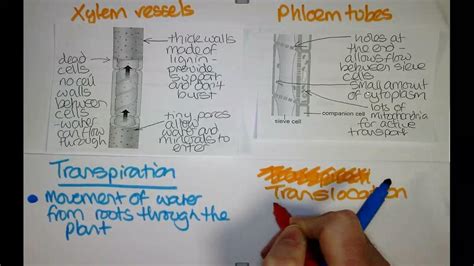 Xylem vessels
dead
cells
no cell
walls
between
cells
- water
can flow
through
thick walls
made of
lignin -
provide
support
and don't
burst
tiny pores
allow
water and
minerals to
enter
Phloem tubes
holes at
the end -
allows flow
between sieve
cells
small amount
of cytoplasm
companion cell
sieve cell
lots of
mitochondria
for active
transport
Transpiration
Movement of water
from roots through the
plant
Translocation